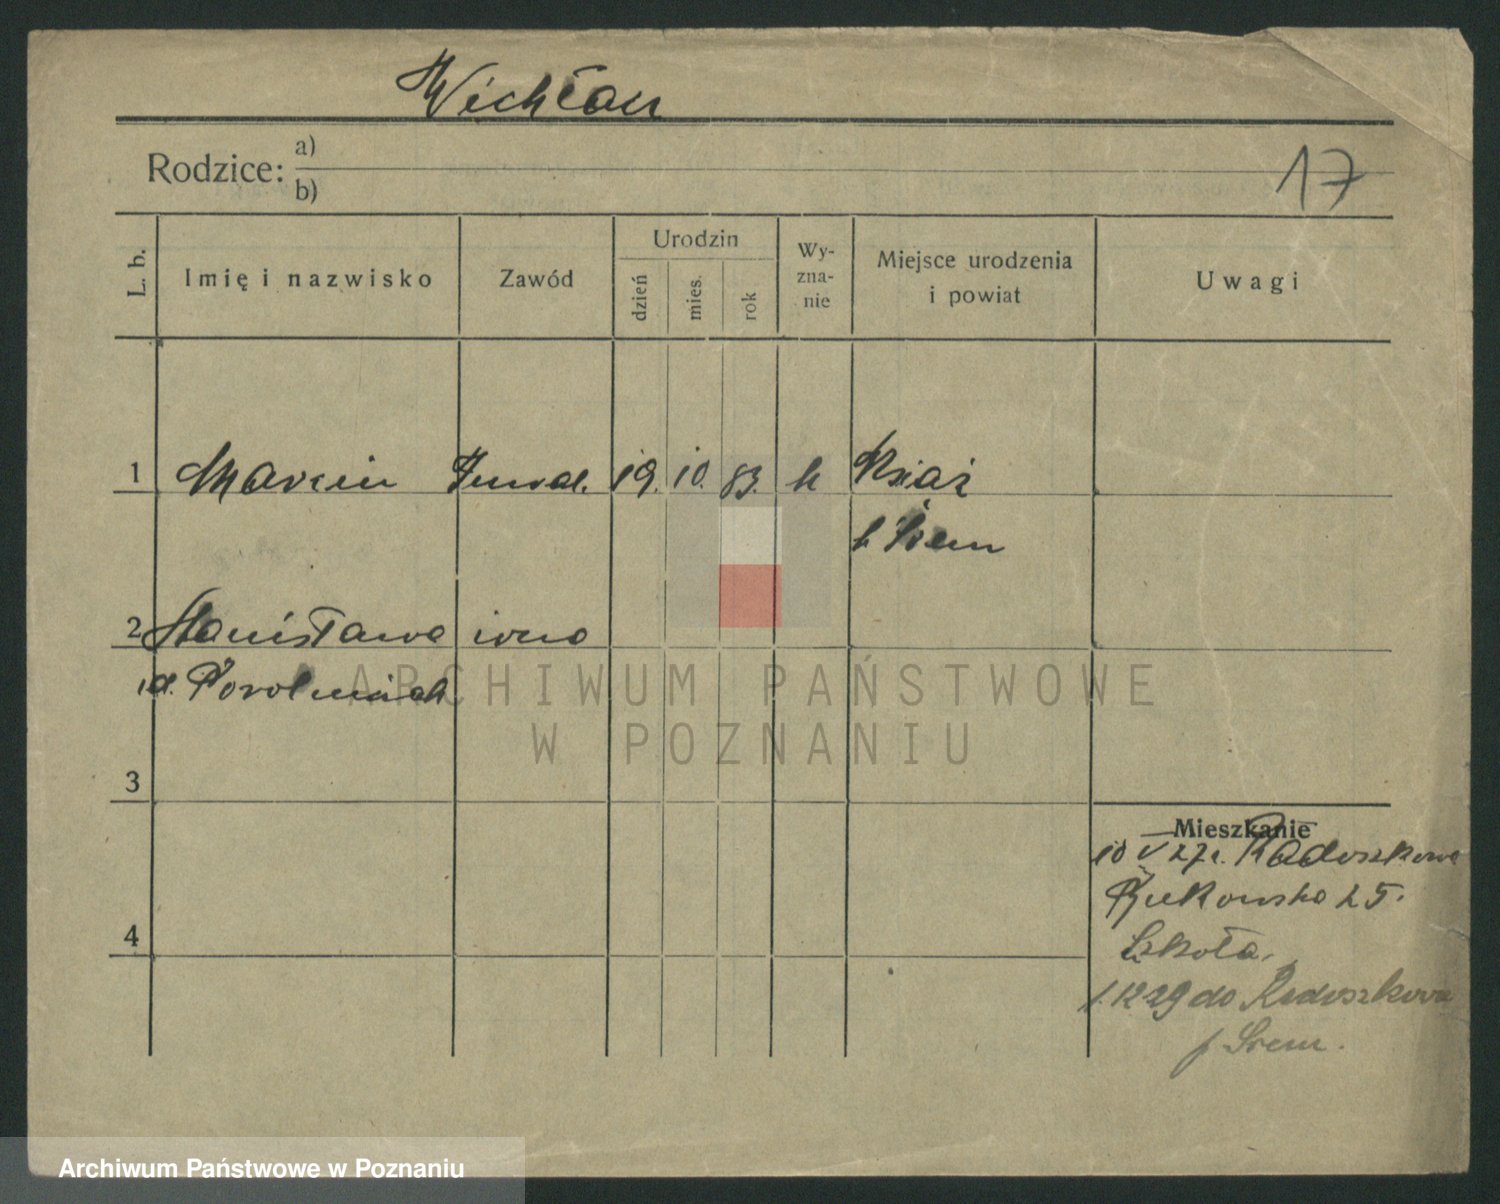 Wichłan
Rodzice: a)
b)
17
L. b.
Imię i nazwisko
Zawód
Urodzin
dzień
mies.
rok
Wy-
zna-
nie
Miejsce urodzenia
i powiat
Uwagi
1 Marcin Inwal. 19. 10. 83. k Książ
Śrem
2 Stanisława
3
4
ARCHIWUM PAŃSTWOWE
W POZNANIU
Mieszkanie
10 V 27 r. Radoszkowa
25.
Szkoła.
1.12 29 do Radoszkowa
p. Śrem.
Archiwum Państwowe w Poznaniu